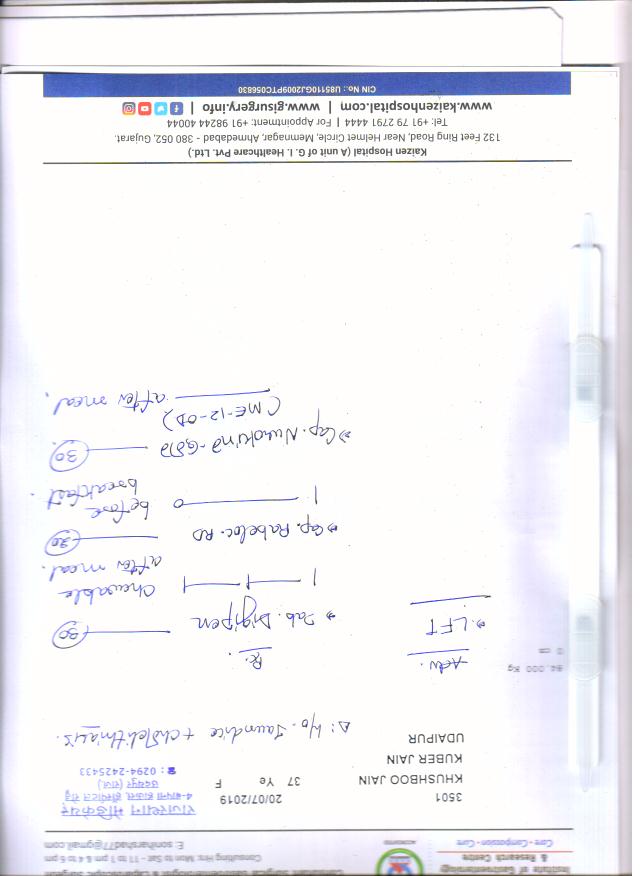 Institute of Gastroenterology
& Research Centre
Care - Compassion - Cure
Consultant Surgical Gastroenterologist & Laparoscopic Surgeon
Consulting Hrs: Mon to Sat - 11 to 1 pm & 4 to 6 pm
E: soniharshad77@gmail.com
राजस्थान मेडिकेयर
4-बापना हाऊस, हॉस्पीटल रोड़
उदयपुर (राज.)
☎ : 0294-2425433
3501 20/07/2019
KHUSHBOO JAIN 37 Ye F
KUBER JAIN
UDAIPUR
Δ: H/o. Jaundice + cholelithiasis.
64.000 Kg
0 cm
Adv.
→ LFT
Rx.
→ Tab. Digipen 30
1 — 1 — 1 chewable
after meal.
→ Cap. Rabeloc-RD 30
1 — 0 before
breakfast.
→ Cap. 30
after meal.
Kaizen Hospital (A unit of G. I. Healthcare Pvt. Ltd.)
132 Feet Ring Road, Near Helmet Circle, Memnagar, Ahmedabad - 380 052, Gujarat.
Tel: +91 79 2791 4444 | For Appointment: +91 98244 40044
www.kaizenhospital.com | www.gisurgery.info |
CIN No.: U85110GJ2009PTC056830